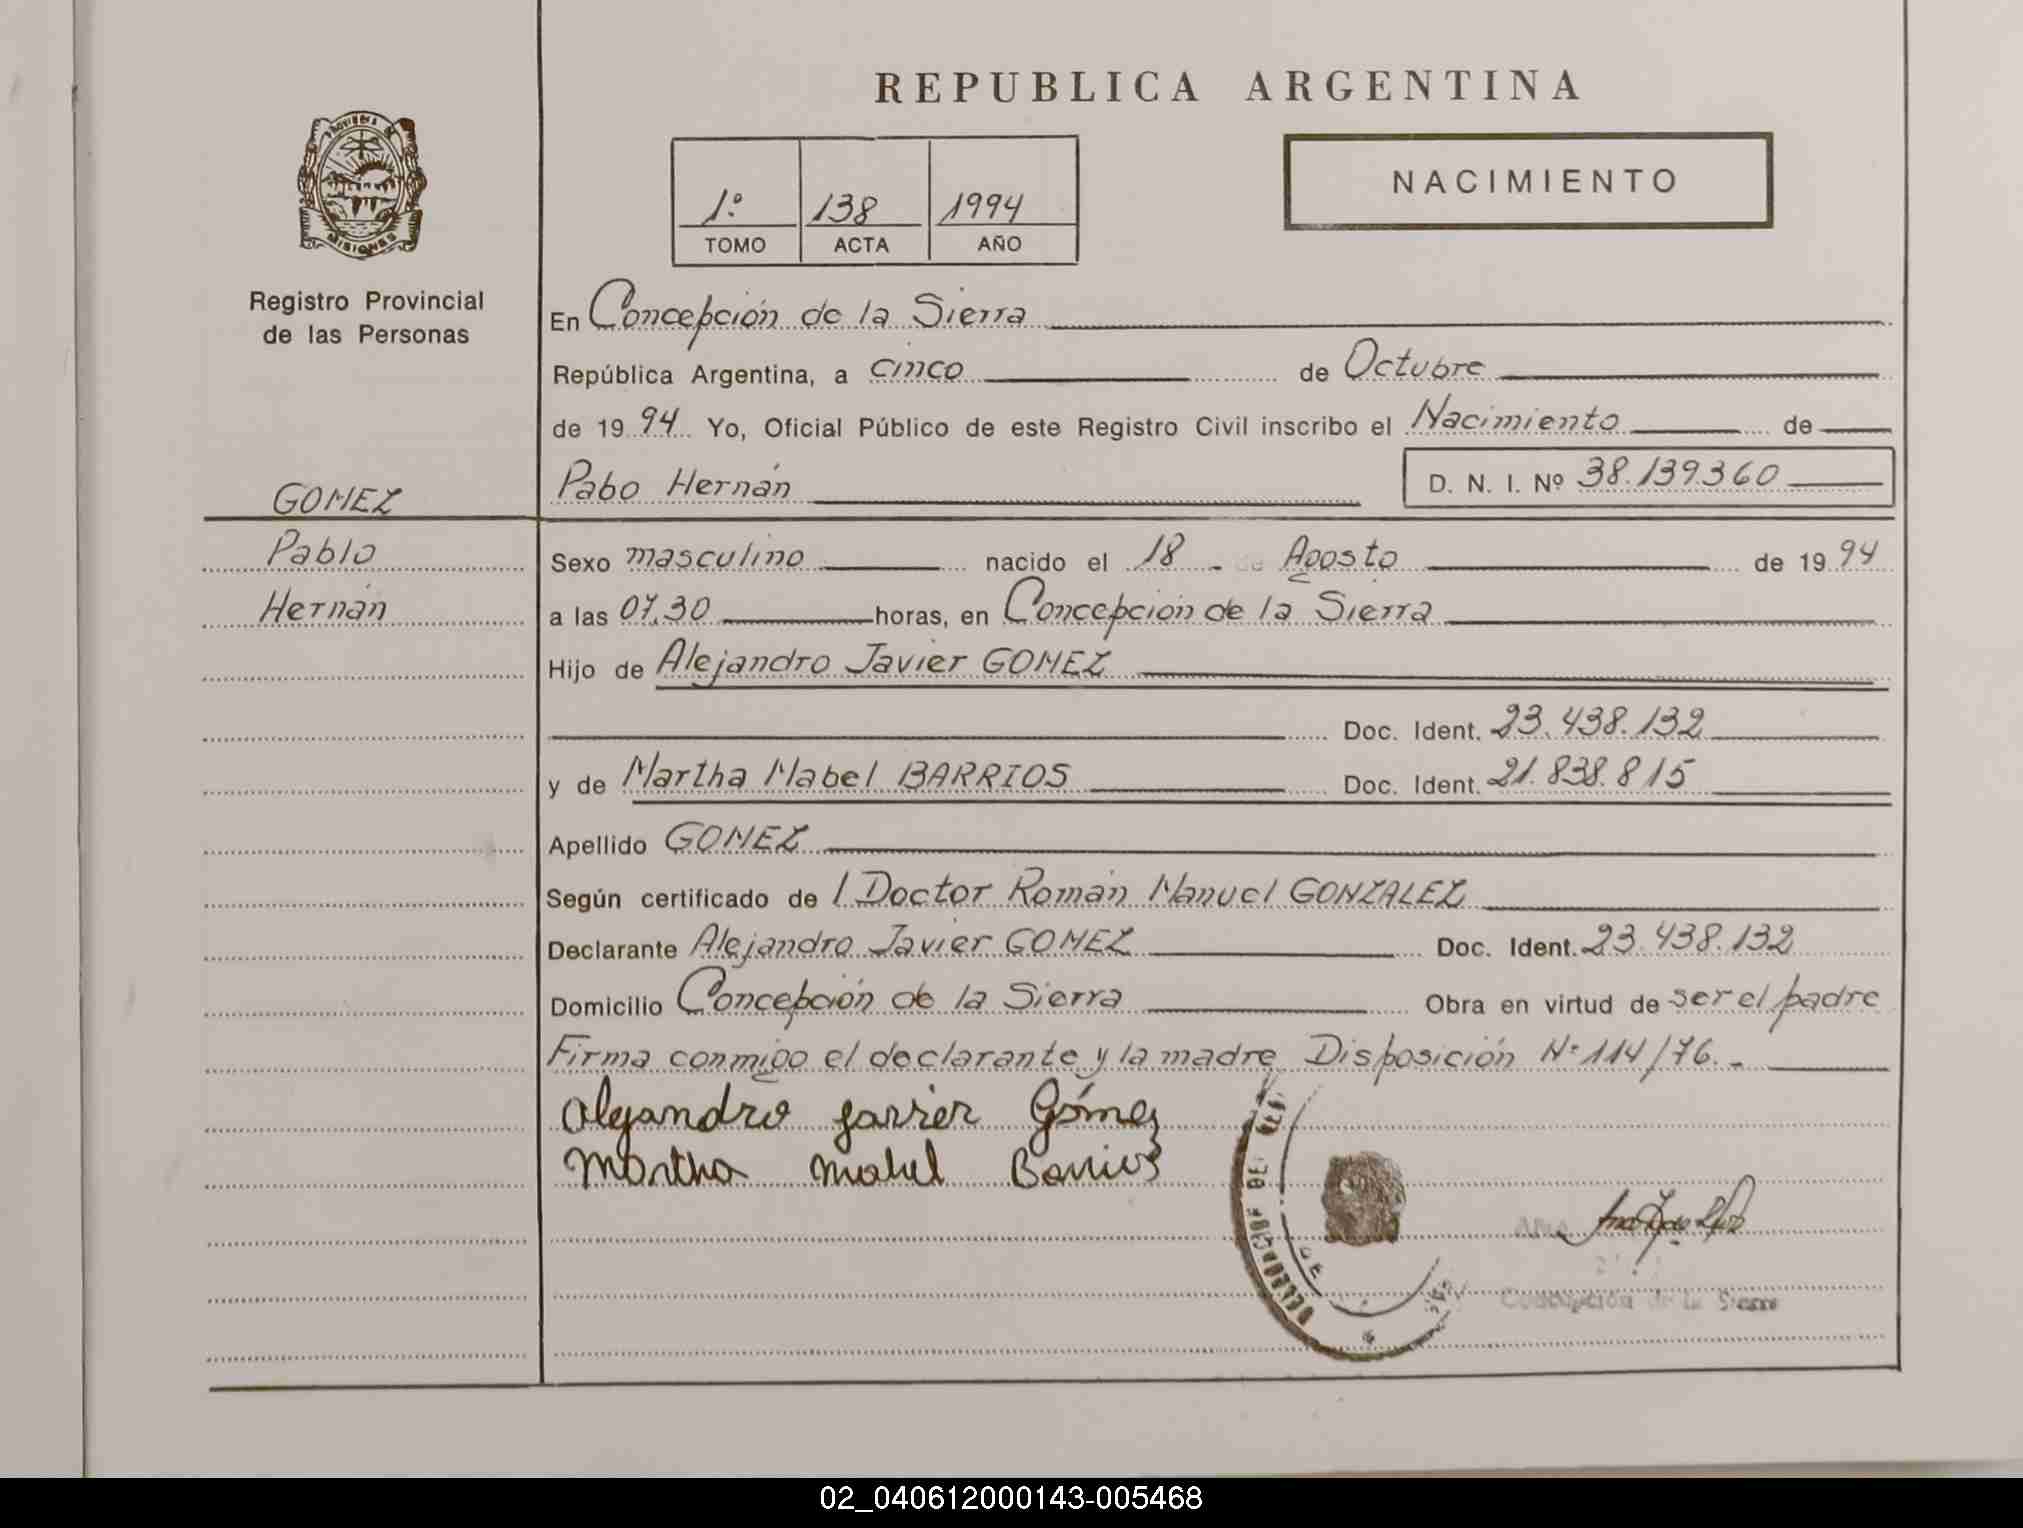 PROVINCIA DE
MISIONES
Registro Provincial
de las Personas
GOMEZ
Pablo
Hernán
REPUBLICA ARGENTINA
1º 138 1994
TOMO ACTA AÑO
NACIMIENTO
En Concepción de la Sierra
República Argentina, a cinco de Octubre
de 1994 Yo, Oficial Público de este Registro Civil inscribo el Nacimiento de
Pabo Hernán D. N. I. Nº 38.139.360
Sexo masculino nacido el 18 - de Agosto de 1994
a las 07,30 horas, en Concepción de la Sierra
Hijo de Alejandro Javier GOMEZ
Doc. Ident. 23.438.132
y de Martha Mabel BARRIOS Doc. Ident. 21.838.815
Apellido GOMEZ
Según certificado de l Doctor Román Manuel GONZALEZ
Declarante Alejandro Javier GOMEZ Doc. Ident. 23.438.132
Domicilio Concepción de la Sierra Obra en virtud de ser el padre
Firma conmigo el declarante y la madre Disposición Nº 114/76.-
Alejandro Javier Gómez
Martha Mabel Barrios
Concepción de la Sierra
02_040612000143-005468